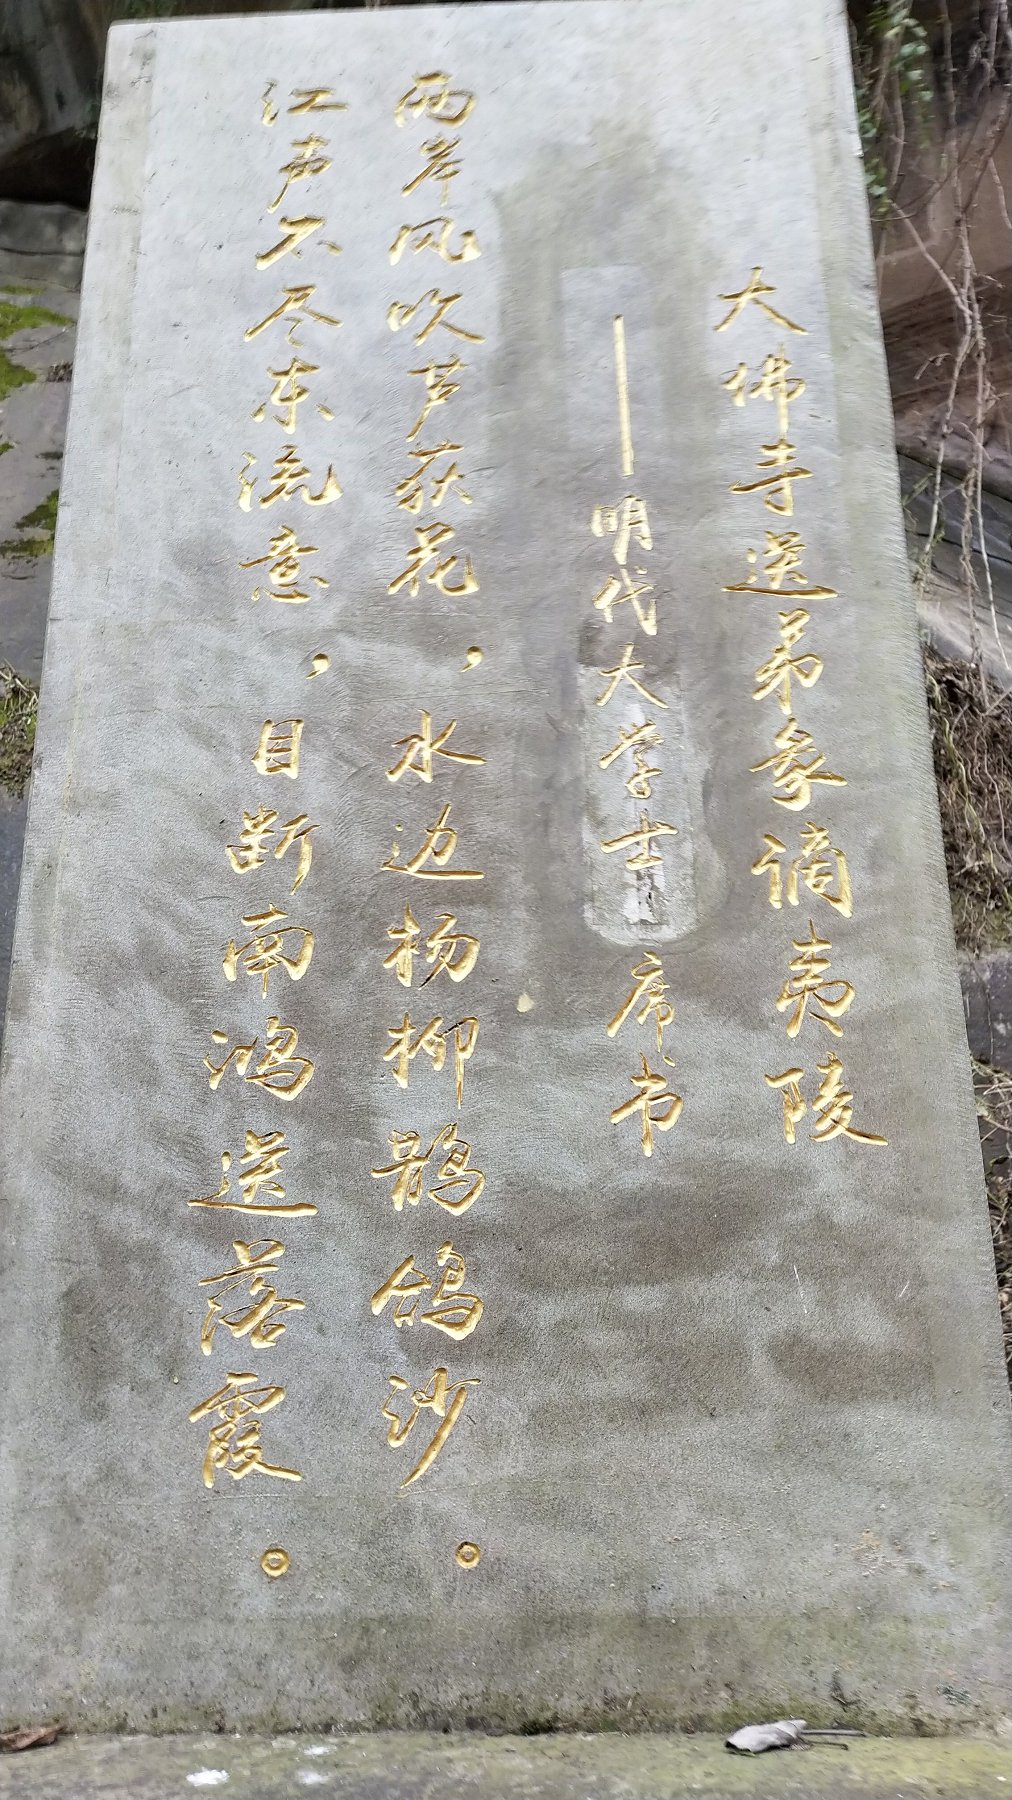 大佛寺送弟彖谪夷陵
——明代大学士 席书
两岸风吹芦荻花，水边杨柳鹡鸰沙。
江声不尽东流意，目断南鸿送落霞。